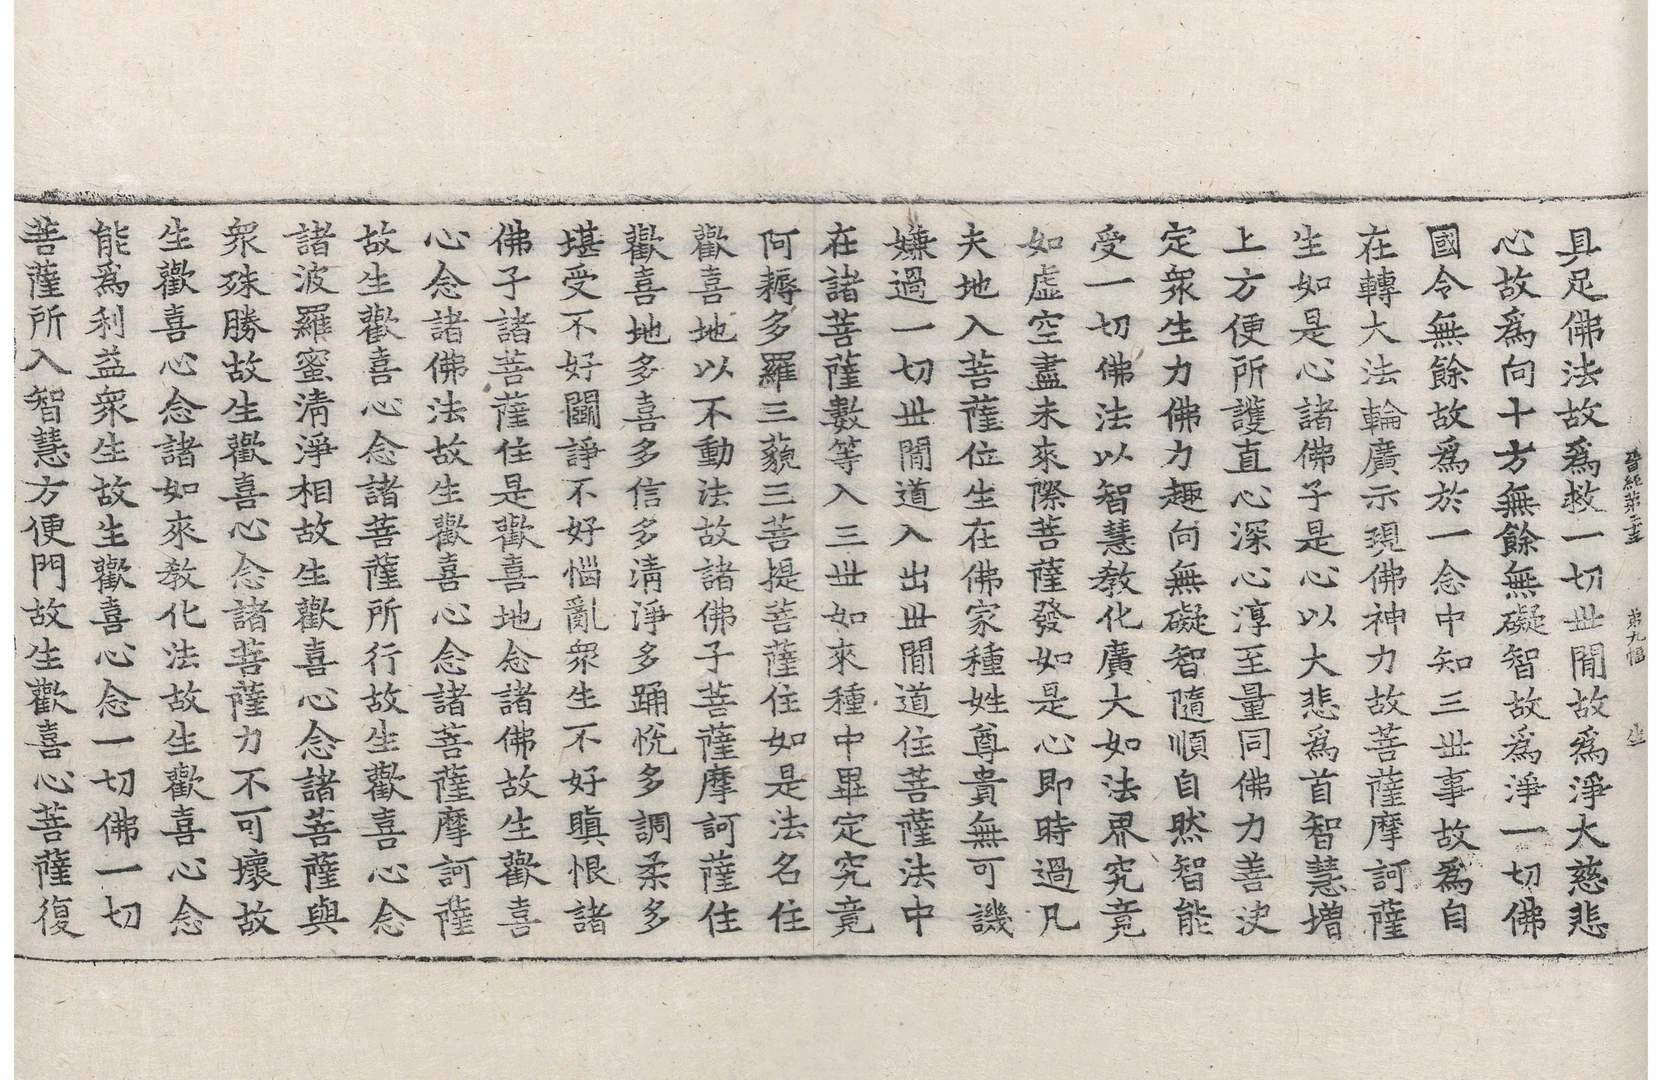 晉經第二十三 第九幅 坐
具足佛法故爲救一切世閒故爲淨大慈悲
心故爲向十方無餘無礙智故爲淨一切佛
國令無餘故爲於一念中知三世事故爲自
在轉大法輪廣示現佛神力故菩薩摩訶薩
生如是心諸佛子是心以大悲爲首智慧增
上方便所護直心深心淳至量同佛力善決
定衆生力佛力趣向無礙智隨順自然智能
受一切佛法以智慧教化廣大如法界究竟
如虛空盡未來際菩薩發如是心即時過凡
夫地入菩薩位生在佛家種姓尊貴無可譏
嫌過一切世閒道入出世閒道住菩薩法中
在諸菩薩數等入三世如來種中畢定究竟
阿耨多羅三藐三菩提菩薩住如是法名住
歡喜地以不動法故諸佛子菩薩摩訶薩住
歡喜地多喜多信多清淨多踊悅多調柔多
堪受不好鬪諍不好惱亂衆生不好瞋恨諸
佛子諸菩薩住是歡喜地念諸佛故生歡喜
心念諸佛法故生歡喜心念諸菩薩摩訶薩
故生歡喜心念諸菩薩所行故生歡喜心念
諸波羅蜜清淨相故生歡喜心念諸菩薩與
衆殊勝故生歡喜心念諸菩薩力不可壞故
生歡喜心念諸如來教化法故生歡喜心念
能爲利益衆生故生歡喜心念一切佛一切
菩薩所入智慧方便門故生歡喜心菩薩復